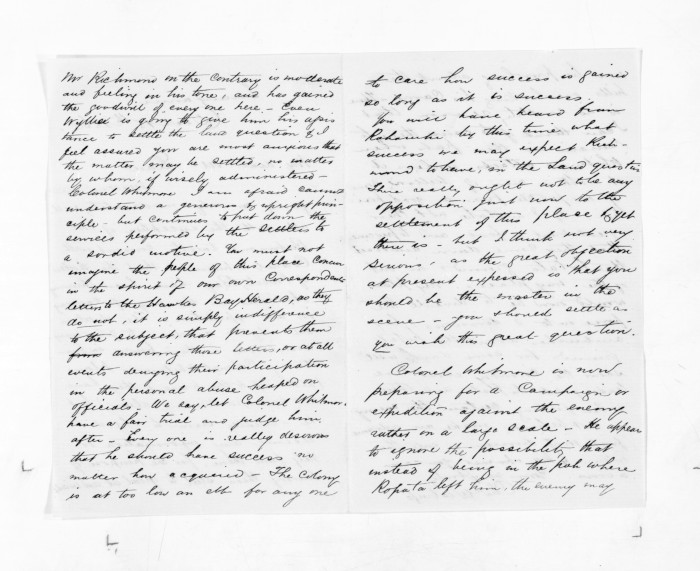 Mr Richmond on the contrary is moderate
and feeling in his tone, and has gained
the goodwill of every one here - Even
Wyllie is going to give him his assis
tance to settle the land question & I
feel assured you are most anxious that
the matter may be settled, no matter
by whom, if wisely administered -
Colonel Whitmore I am afraid cannot
understand a generous & upright prin-
ciple - but continues to put down the
services performed by the settlers to
a sordid motive. You must not
imagine the people of this place concur
in the spirit of our own Correspondents
letter to the Hawkes Bay Herald, as they
do not, it is simply indifference
to the subject, that prevents them
from answering those letters, or at all
events denying their participation
in the personal abuse heaped on
officials - We say, let Colonel Whitmore
have a fair trial and judge him
after - Every one is really desirous
that he should have success no
matter how acquired - The Colony
is at too low an ebb for any one
to care how success is gained
so long as it is success.
You will have heard from
by this time what
success we may expect Rich-
mond to have, in the Land question
There really ought not to be any
opposition just now to the
settlement of this place & yet
there is - but I think not very
serious, as the great objection
at present expressed is that you
should be the master in the
scene - you should settle as
you wish this great question.
Colonel Whitmore is now
preparing for a Campaign or
expedition against the enemy
rather on a large scale - He appears
to ignore the possibility that
instead of being in the pah where
Ropata left him, the enemy may